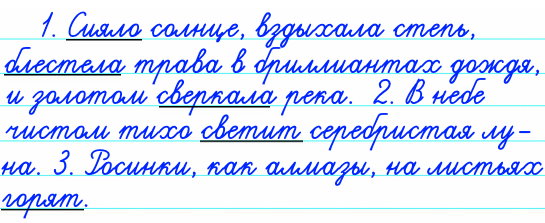 1. Сияло солнце, вздыхала степь,
блестела трава в бриллиантах дождя,
и золотом сверкала река. 2. В небе
чистом тихо светит серебристая лу-
на. 3. Росинки, как алмазы, на листьях
горят.